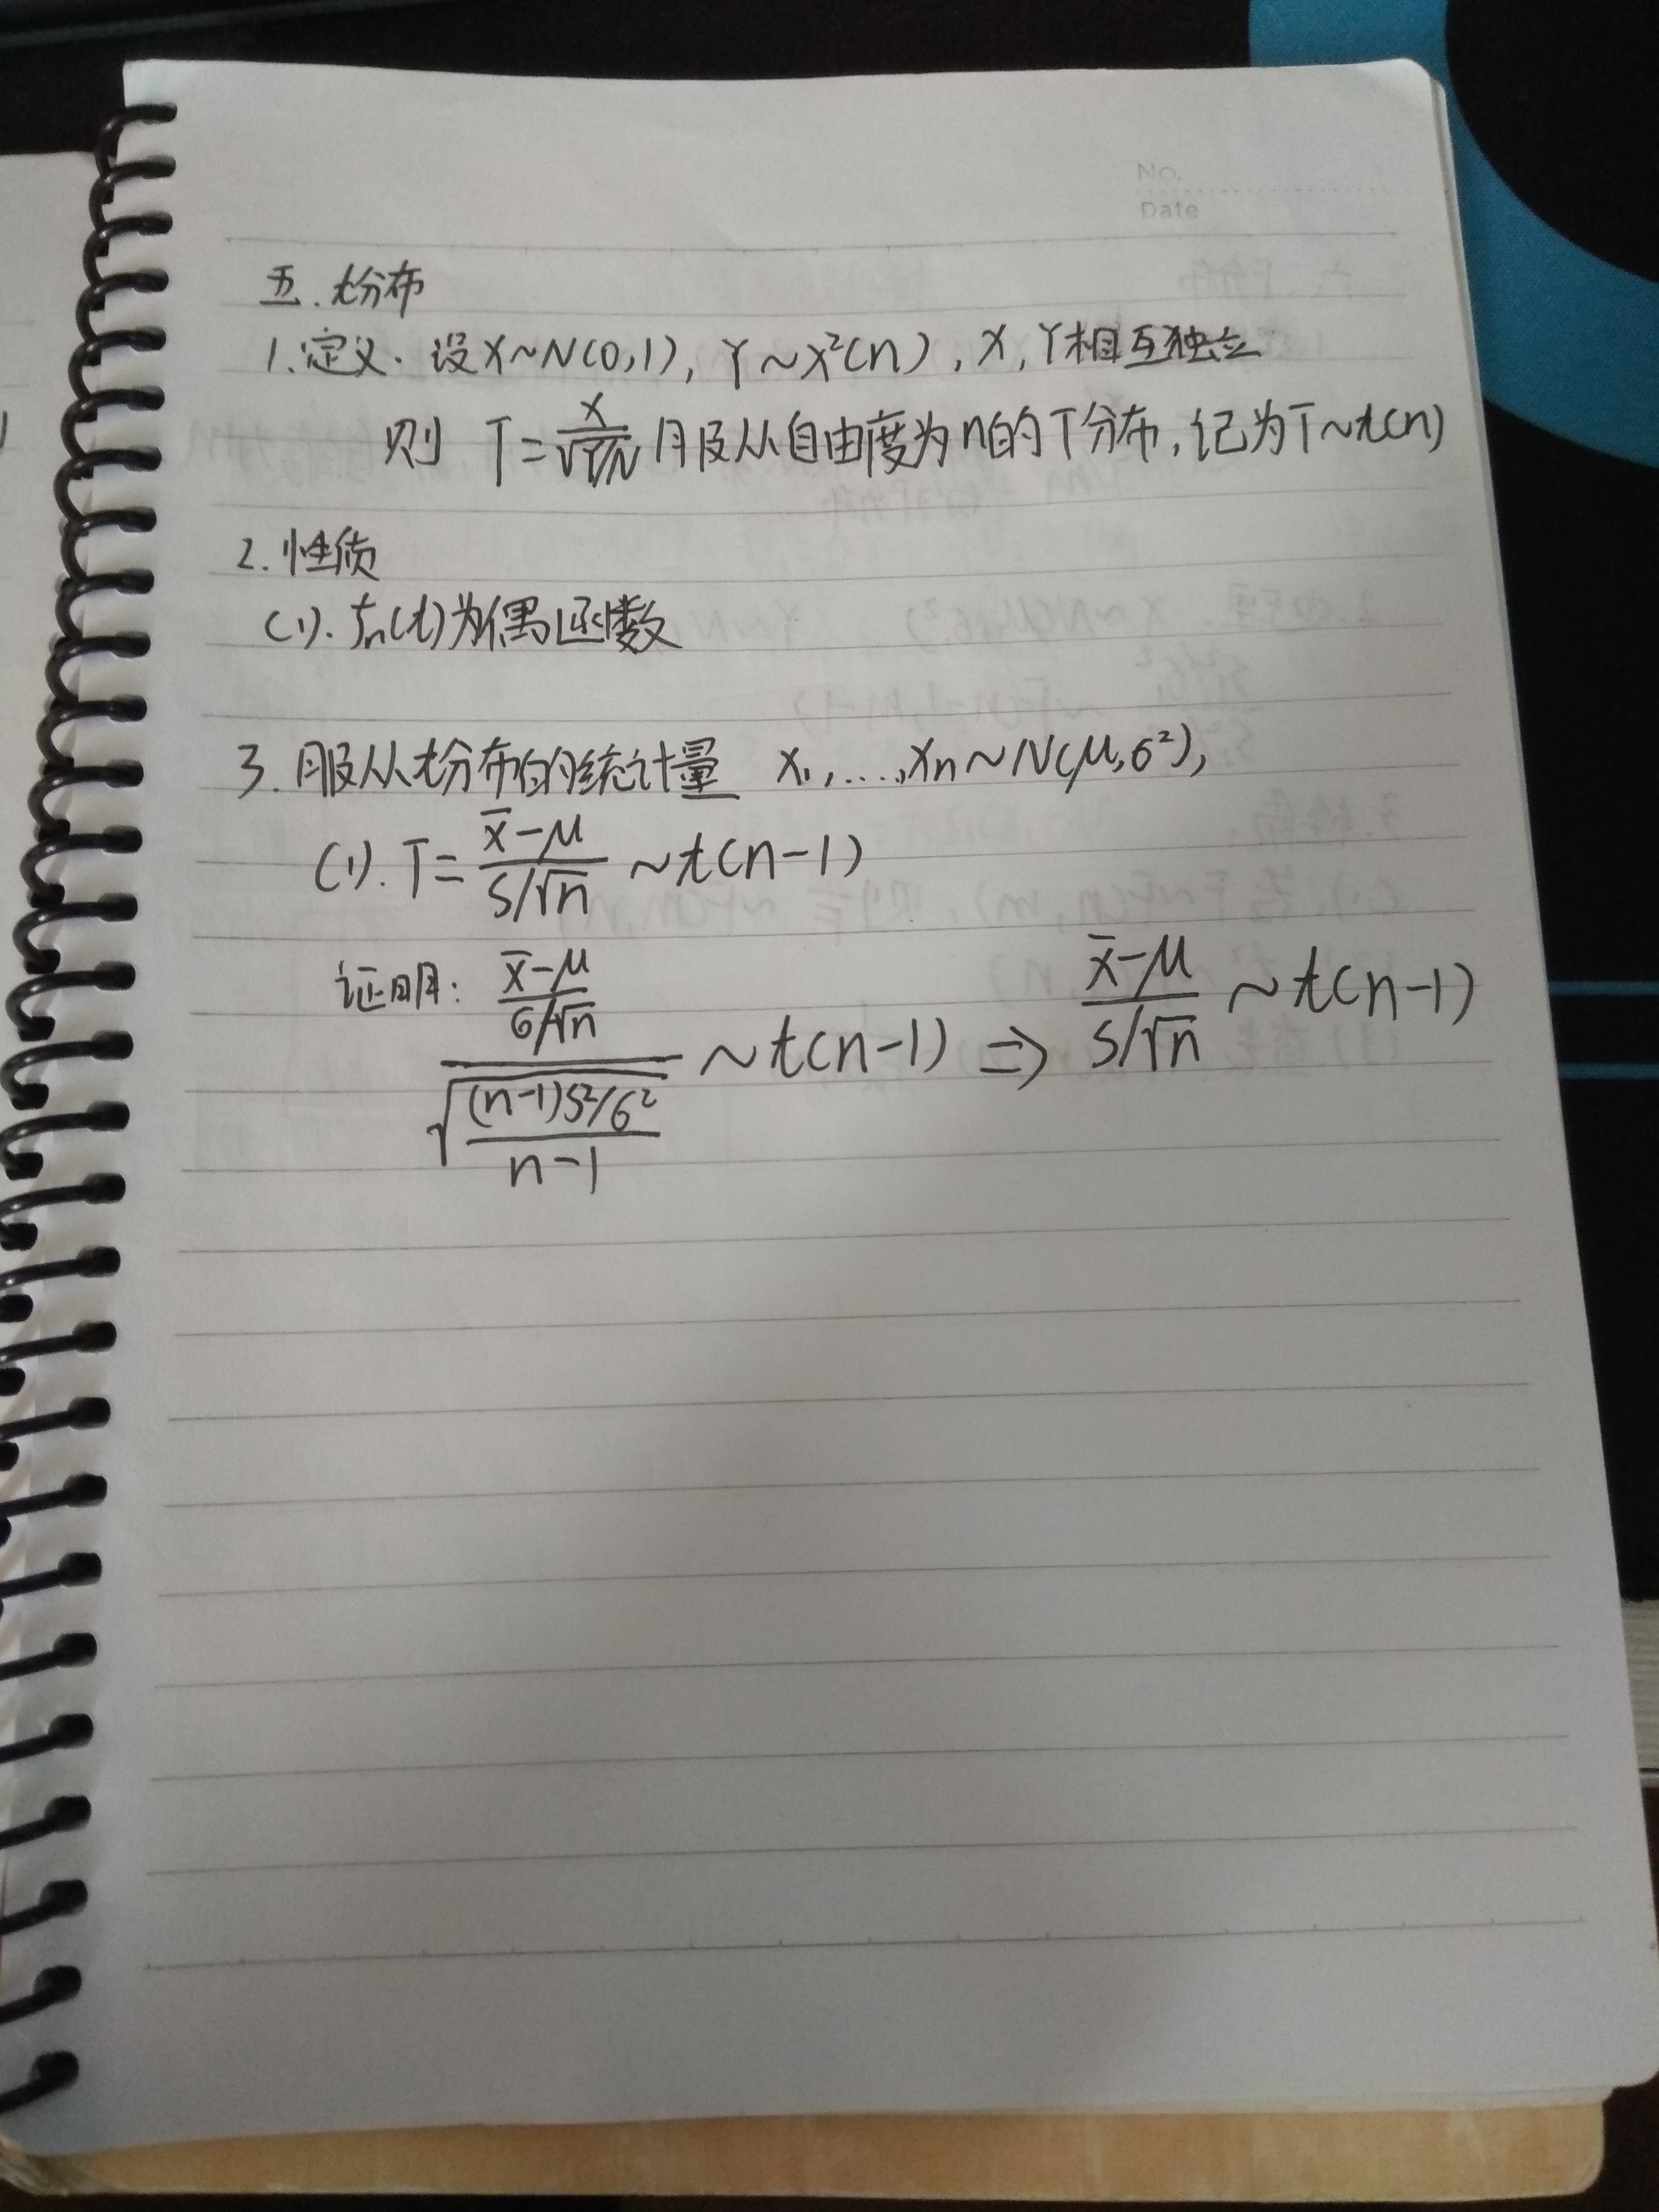 No.
Date
五. t分布
1.定义. 设X~N(0,1), Y~X²(n), X, Y相互独立
则 T=X/√(Y/n) 服从自由度为n的T分布,记为T~t(n)
2.性质
(1). fn(t)为偶函数
3. 服从t分布的统计量 X₁,...,Xn~N(μ,σ²),
(1). T=(x̄-μ)/(S/√n) ~t(n-1)
证明: ((x̄-μ)/(σ/√n))/√(((n-1)S²/σ²)/(n-1)) ~t(n-1) ⇒ (x̄-μ)/(S/√n) ~t(n-1)